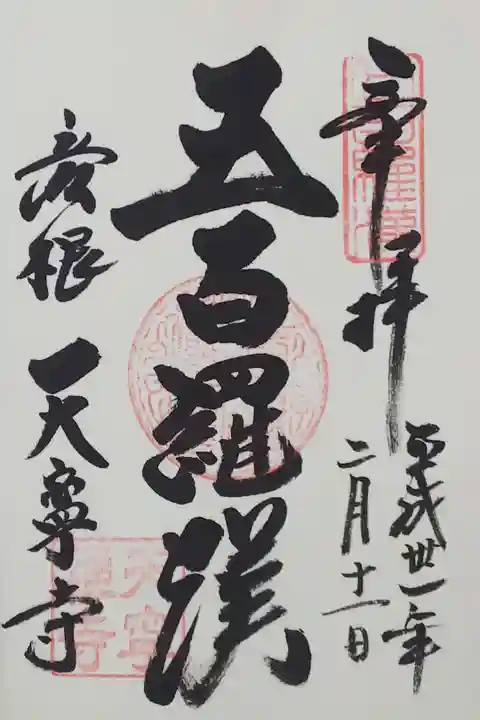 奉拝
平成卅一年
二月十一日
五百羅漢
彦根 天寧寺